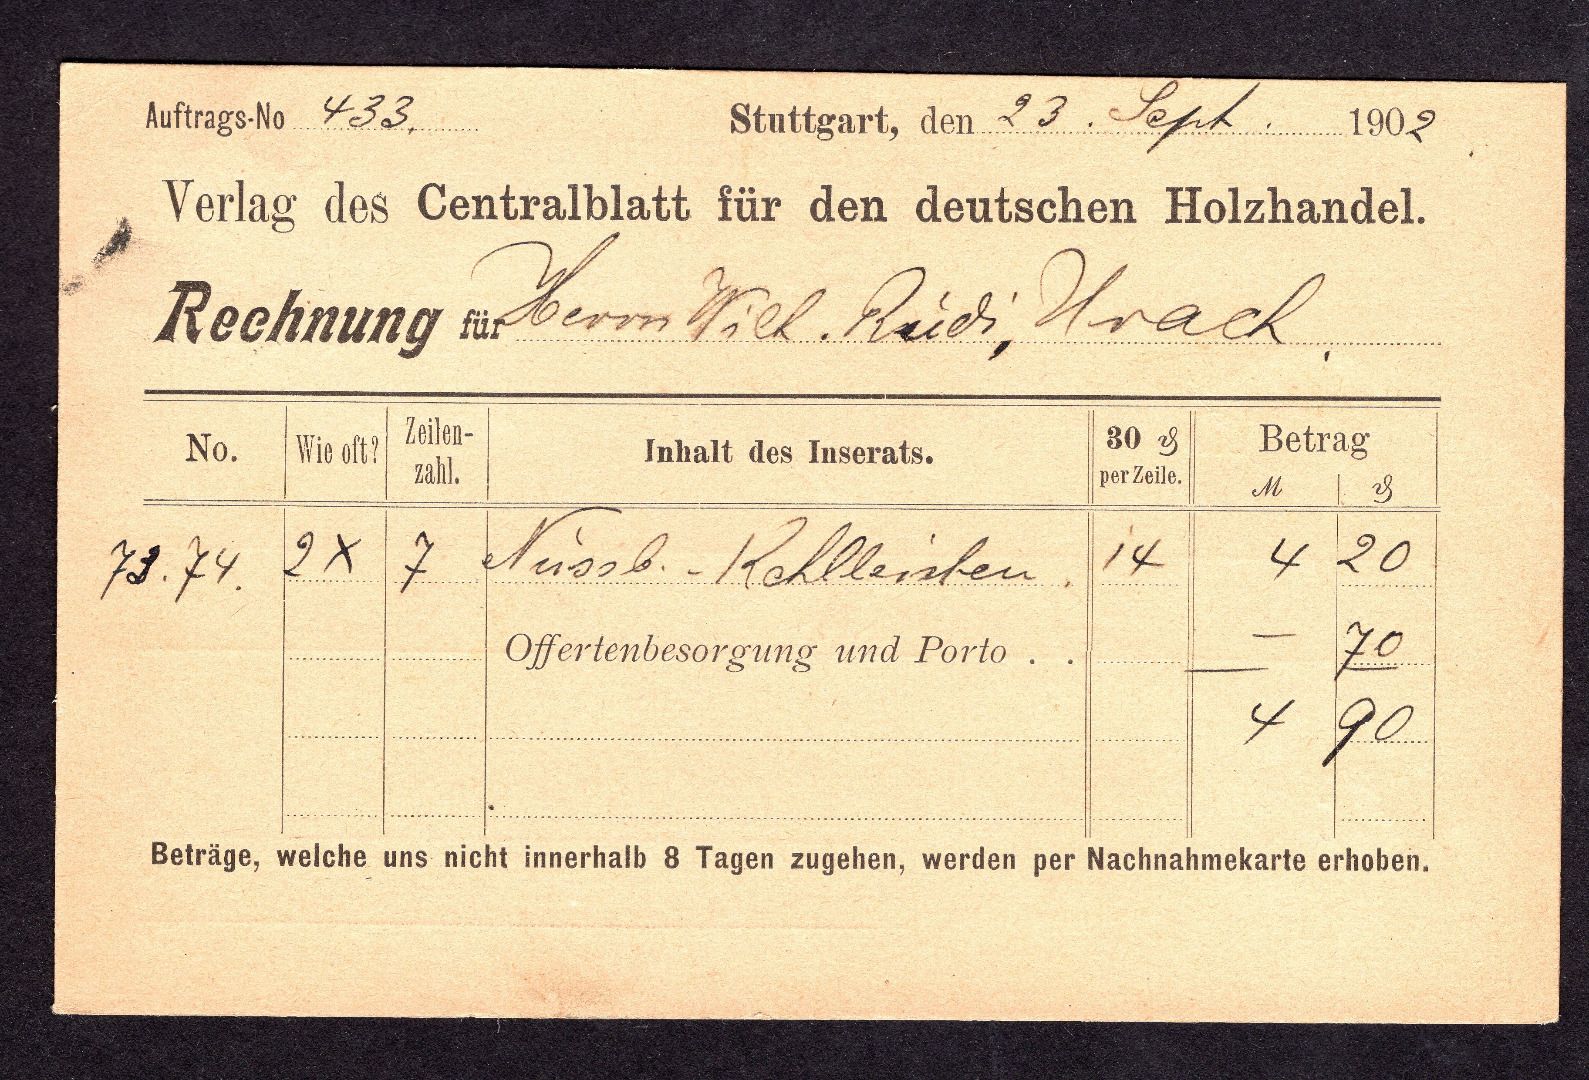 Auftrags-No 433. Stuttgart, den 23. Sept. 1902
Verlag des Centralblatt für den deutschen Holzhandel.
Rechnung für Herrn Wilh. Rüdi, Urach.
No. Wie oft? Zeilen-zahl. Inhalt des Inserats. 30 ₰ per Zeile. Betrag
M ₰
73.74. 2 X 7 Nussb. - Kehlleisten. 14 4 20
Offertenbesorgung und Porto . . — 70
4 90
Beträge, welche uns nicht innerhalb 8 Tagen zugehen, werden per Nachnahmekarte erhoben.